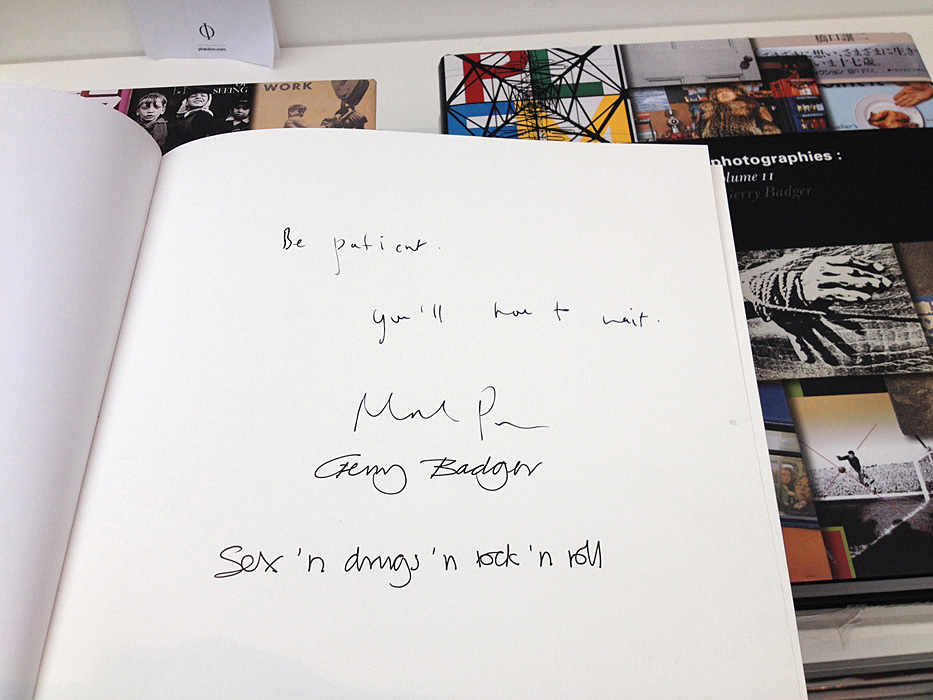 Φ
phaidon.com
SEEING
WORK
橋口譲二
さまざまに想い、さまざまに生き
いま十七歳。
photographies :
olume 11
Gerry Badger
Be patient.
you'll have to wait.
Mark Parr
Gerry Badger
Sex 'n drugs 'n rock 'n roll